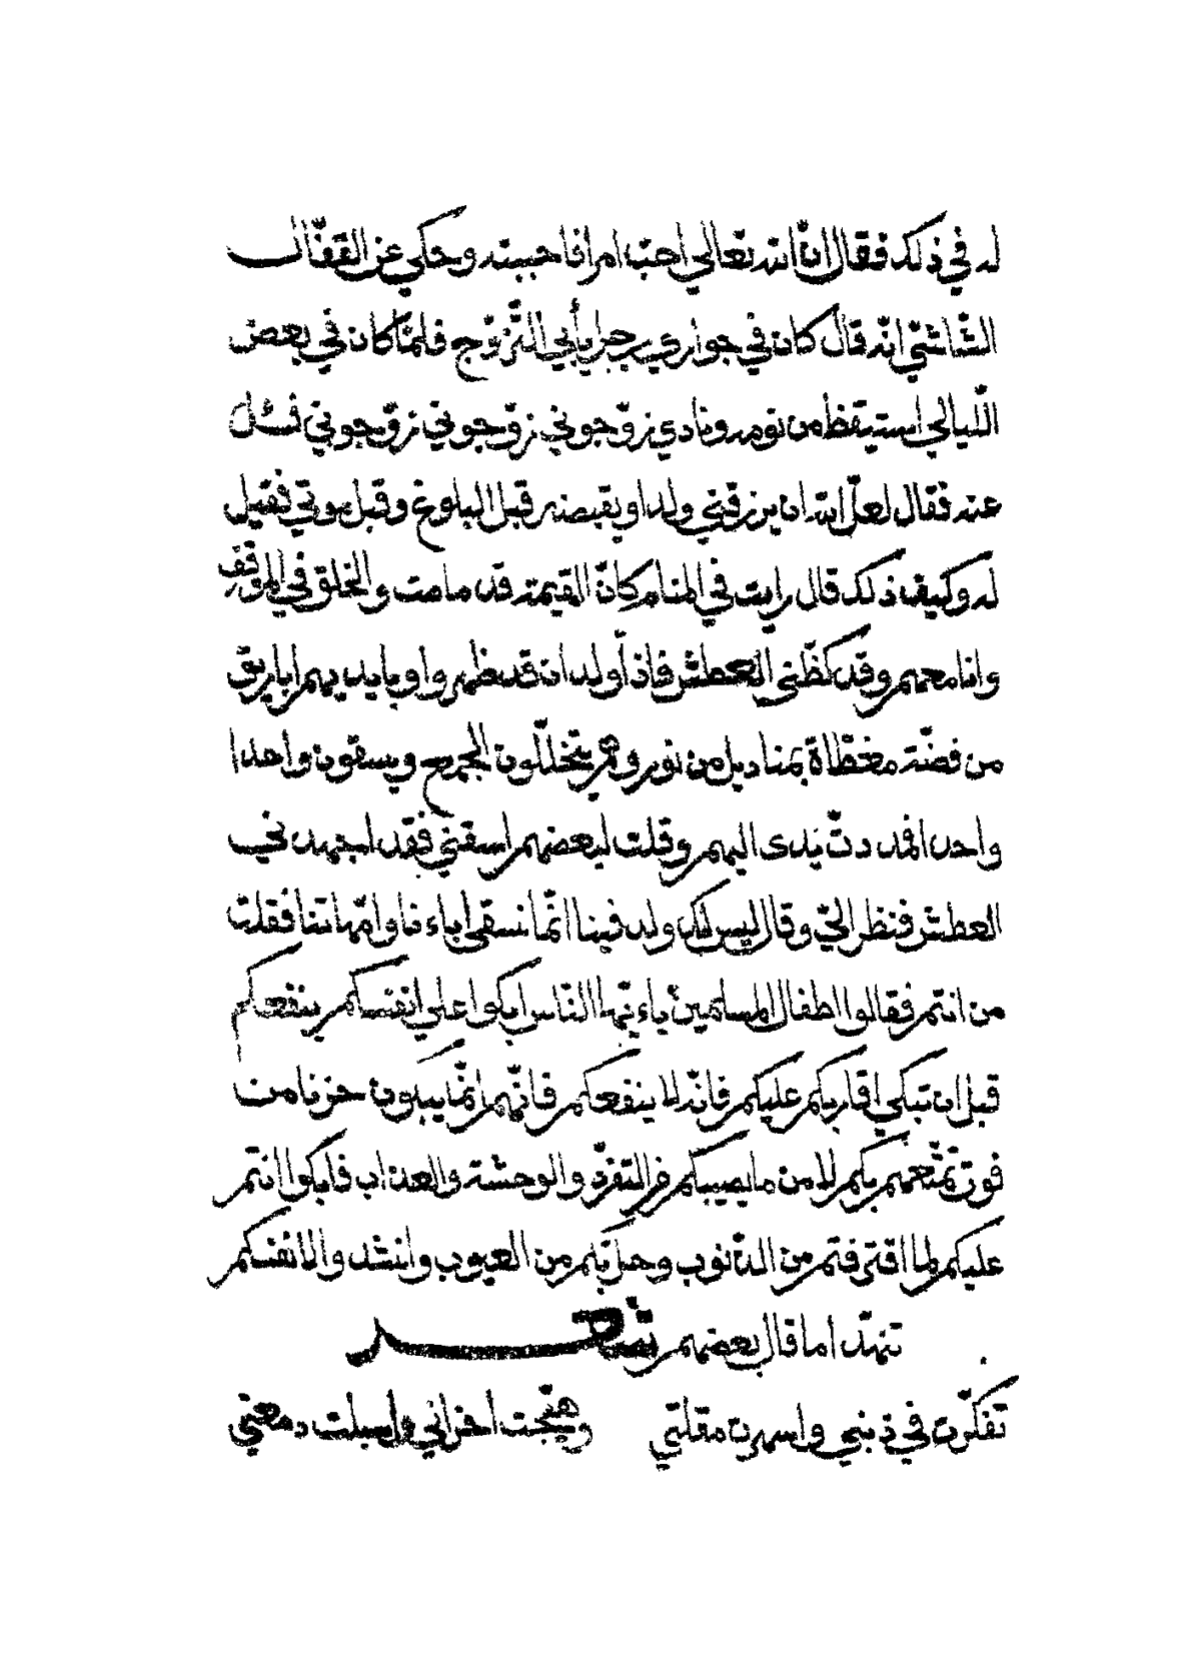 له في ذلك فقال انّ الله تعالى احبّ امرا فاحببته وحكي عن القفّال
الشّاشيّ انّه قال كان في جواري رجل يأبى التّزوّج فلمّا كان في بعض
اللّيالي استيقظ من نومه ونادي زوّجوني زوّجوني زوّجوني فسئل
عنه فقال لعلّ الله ان يرزقني ولدا ويقبضه قبل البلوغ وقبل موتي فقيل
له وكيف ذلك قال رايت في المنام كانّ القيمة قد قامت والخلق في الموقف
وانا معهم وقد كظّني العطش فاذا ولدان قد ظهروا وبايديهم اباريق
من فضّة مغطّاة بمناديل من نور وهم يتخلّلون الجمع ويسقون واحدا
واحدا فمددتّ يدى اليهم وقلت لبعضهم اسقني فقد اجهدني
العطش فنظر اليّ وقال ليس لك ولد فينا انّما نسقى اباءنا وامّهاتنا فقلت
من انتم فقالوا اطفال المسلمين ياءيّها النّاس ابكوا على انفسكم ينفعكم
قبل ان تبكي اقاربكم عليكم فانّه لا ينفعكم فانّهم انّما يبكون حزنا من
فوت تمتّعهم بكم لا من ما يصيبكم من التفرّد والوحشة والعذاب فابكوا انتم
عليكم لما اقترفتم من الذّنوب وحلّ بكم من العيوب وانشد والانفسكم
تنهّدا ما قال بعضهم شعر
تفكّرت في ذنبي واسهرت مقلتي وهيّجت احزاني واسبلت دمعتي